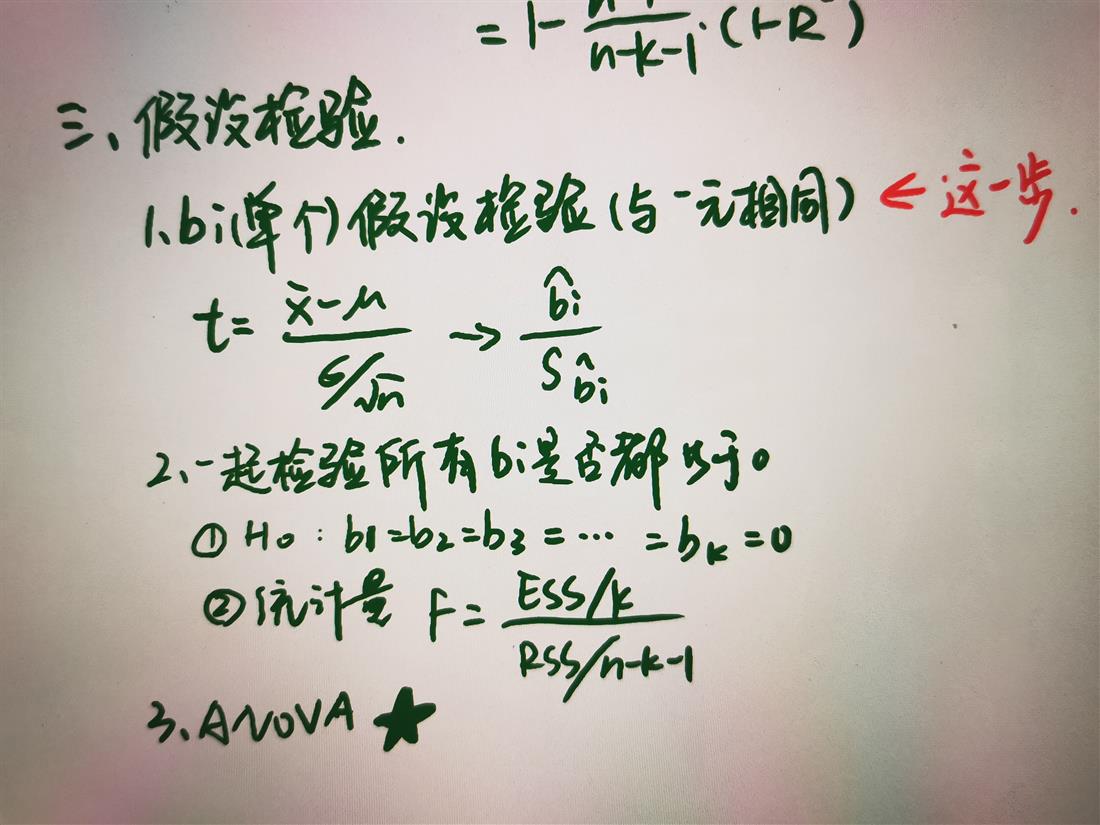 = 1 - n-1/n-k-1 · (1-R²)
三、假设检验.
1、bi(单个)假设检验(与一元相同) ← 这一步.
t = x̄-μ / S/√n → b̂i / S b̂i
2、一起检验所有bi是否都为于0
① H0 : b1=b2=b3 = ⋯ = bk = 0
② 统计量 F = ESS/k / RSS/n-k-1
3、ANOVA ★